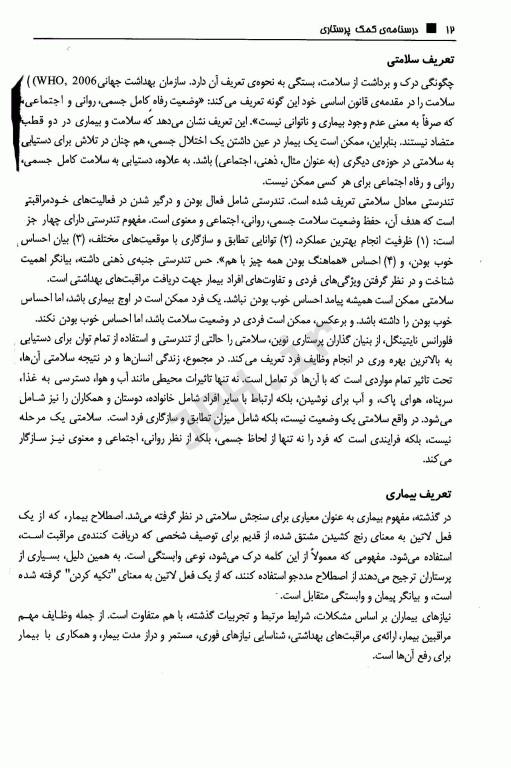 ۱۲ ■ درسنامه‌ی کمک پرستاری
تعریف سلامتی
چگونگی درک و برداشت از سلامت، بستگی به نحوه‌ی تعریف آن دارد. سازمان بهداشت جهانی WHO, 2006)) )
سلامت را در مقدمه‌ی قانون اساسی خود این گونه تعریف می‌کند: «وضعیت رفاه کامل جسمی، روانی و اجتماعی،
که صرفاً به معنی عدم وجود بیماری و ناتوانی نیست». این تعریف نشان می‌دهد که سلامت و بیماری در دو قطب
متضاد نیستند. بنابراین، ممکن است یک بیمار در عین داشتن یک اختلال جسمی، هم چنان در تلاش برای دستیابی
به سلامتی در حوزه‌ی دیگری (به عنوان مثال، ذهنی، اجتماعی) باشد. به علاوه، دستیابی به سلامت کامل جسمی،
روانی و رفاه اجتماعی برای هر کسی ممکن نیست.
تندرستی معادل سلامتی تعریف شده است. تندرستی شامل فعال بودن و درگیر شدن در فعالیت‌های خودمراقبتی
است که هدف آن، حفظ وضعیت سلامت جسمی، روانی، اجتماعی و معنوی است. مفهوم تندرستی دارای چهار جز
است: (۱) ظرفیت انجام بهترین عملکرد، (۲) توانایی تطابق و سازگاری با موقعیت‌های مختلف، (۳) بیان احساس
خوب بودن، و (۴) احساس «هماهنگ بودن همه چیز با هم». حس تندرستی جنبه‌ی ذهنی داشته، بیانگر اهمیت
شناخت و در نظر گرفتن ویژگی‌های فردی و تفاوت‌های افراد بیمار جهت دریافت مراقبت‌های بهداشتی است.
سلامتی ممکن است همیشه پیامد احساس خوب بودن نباشد. یک فرد ممکن است در اوج بیماری باشد، اما احساس
خوب بودن را داشته باشد. و برعکس، ممکن است فردی در وضعیت سلامت باشد، اما احساس خوب بودن نکند.
فلورانس نایتینگل، از بنیان گذاران پرستاری نوین، سلامتی را حالتی از تندرستی و استفاده از تمام توان برای دستیابی
به بالاترین بهره وری در انجام وظایف فرد تعریف می‌کند. در مجموع، زندگی انسان‌ها و در نتیجه سلامتی آن‌ها،
تحت تاثیر تمام مواردی است که با آن‌ها در تعامل است. نه تنها تاثیرات محیطی مانند آب و هوا، دسترسی به غذا،
سرپناه، هوای پاک، و آب برای نوشیدن، بلکه ارتباط با سایر افراد شامل خانواده، دوستان و همکاران را نیز شامل
می‌شود. در واقع سلامتی یک وضعیت نیست، بلکه شامل میزان تطابق و سازگاری فرد است. سلامتی یک مرحله
نیست، بلکه فرایندی است که فرد را نه تنها از لحاظ جسمی، بلکه از نظر روانی، اجتماعی و معنوی نیز سازگار
می‌کند.
تعریف بیماری
در گذشته، مفهوم بیماری به عنوان معیاری برای سنجش سلامتی در نظر گرفته می‌شد. اصطلاح بیمار، که از یک
فعل لاتین به معنای رنج کشیدن مشتق شده، از قدیم برای توصیف شخصی که دریافت کننده‌ی مراقبت است،
استفاده می‌شود. مفهومی که معمولاً از این کلمه درک می‌شود، نوعی وابستگی است. به همین دلیل، بسیاری از
پرستاران ترجیح می‌دهند از اصطلاح مددجو استفاده کنند، که از یک فعل لاتین به معنای "تکیه کردن" گرفته شده
است، و بیانگر پیمان و وابستگی متقابل است.
نیازهای بیماران بر اساس مشکلات، شرایط مرتبط و تجربیات گذشته، با هم متفاوت است. از جمله وظایف مهم
مراقبین بیمار، ارائه‌ی مراقبت‌های بهداشتی، شناسایی نیازهای فوری، مستمر و دراز مدت بیمار، و همکاری با بیمار
برای رفع آن‌ها است.